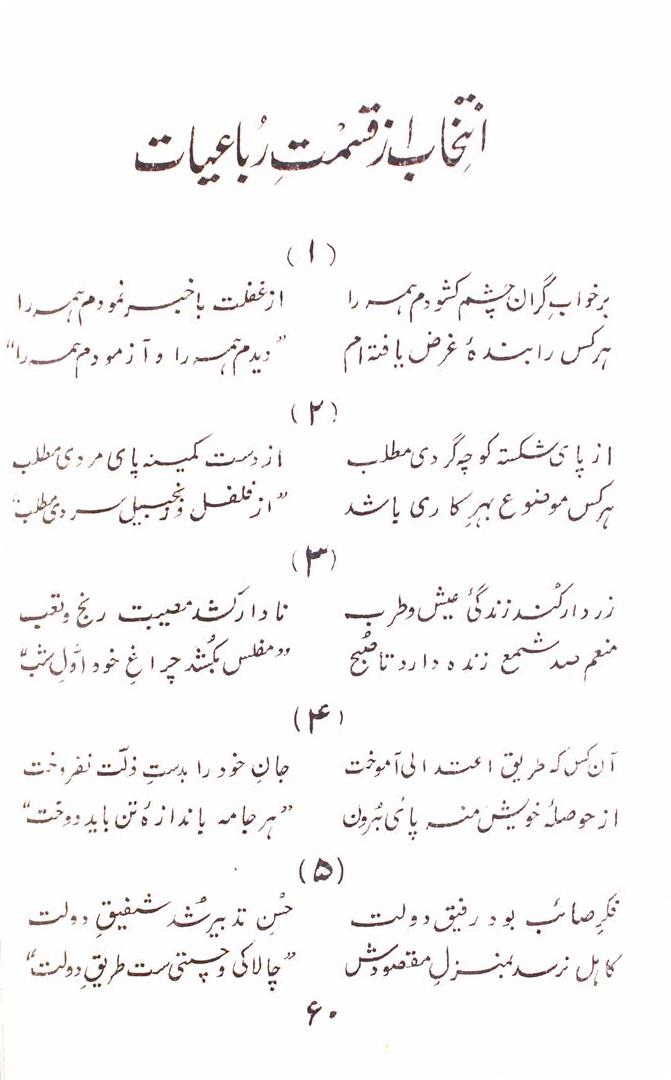 انتخاب از قسمتِ رُباعیات
(۱)
برخوابِ گران چشم کشودم همه را از غفلت با خبر نمودم همه را
هرکس را بندهٔ غرض یافته ام "دیدم همه را و آزمودم همه را"
(۲)
از پای شکسته کوچه گردی مطلب از دست کمینه پای مردی مطلب
هرکس موضوع بهرِ کاری باشد "از فلفل و زنجبیل سردی مطلب"
(۳)
زردار کُند زندگیٔ عیش و طرب نادار کشد مصیبت رنج و تعب
منعم صد شمع زنده دارد تا صُبح "مفلس بکُشد چراغِ خود اوّلِ شب"
(۴)
آن کس که طریق اعتدالی آموخت جانِ خود را بدستِ ذلّت نفروخت
از حوصلهٔ خویش منه پائ بُرون "هر جامه باندازهٔ تن باید دوخت"
(۵)
فکرِ صائب بود رفیق دولت حُسنِ تدبیر شُد شفیقِ دولت
کاہل نرسد بمنزلِ مقصودش "چالاکی و چستی ست طریقِ دولت"
۶۰